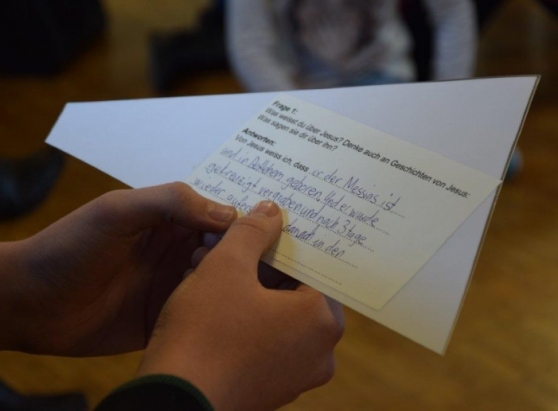 Frage 1:
Was weisst du über Jesus? Denke auch an Geschichten von Jesus:
Was sagen sie dir über ihn?
Antworten:
Von Jesus weiss ich, dass er der Messias ist
und in Betlehem geboren. Und er wurde
gekreuzigt, vergraben und nach 3 tage
wieder
an den